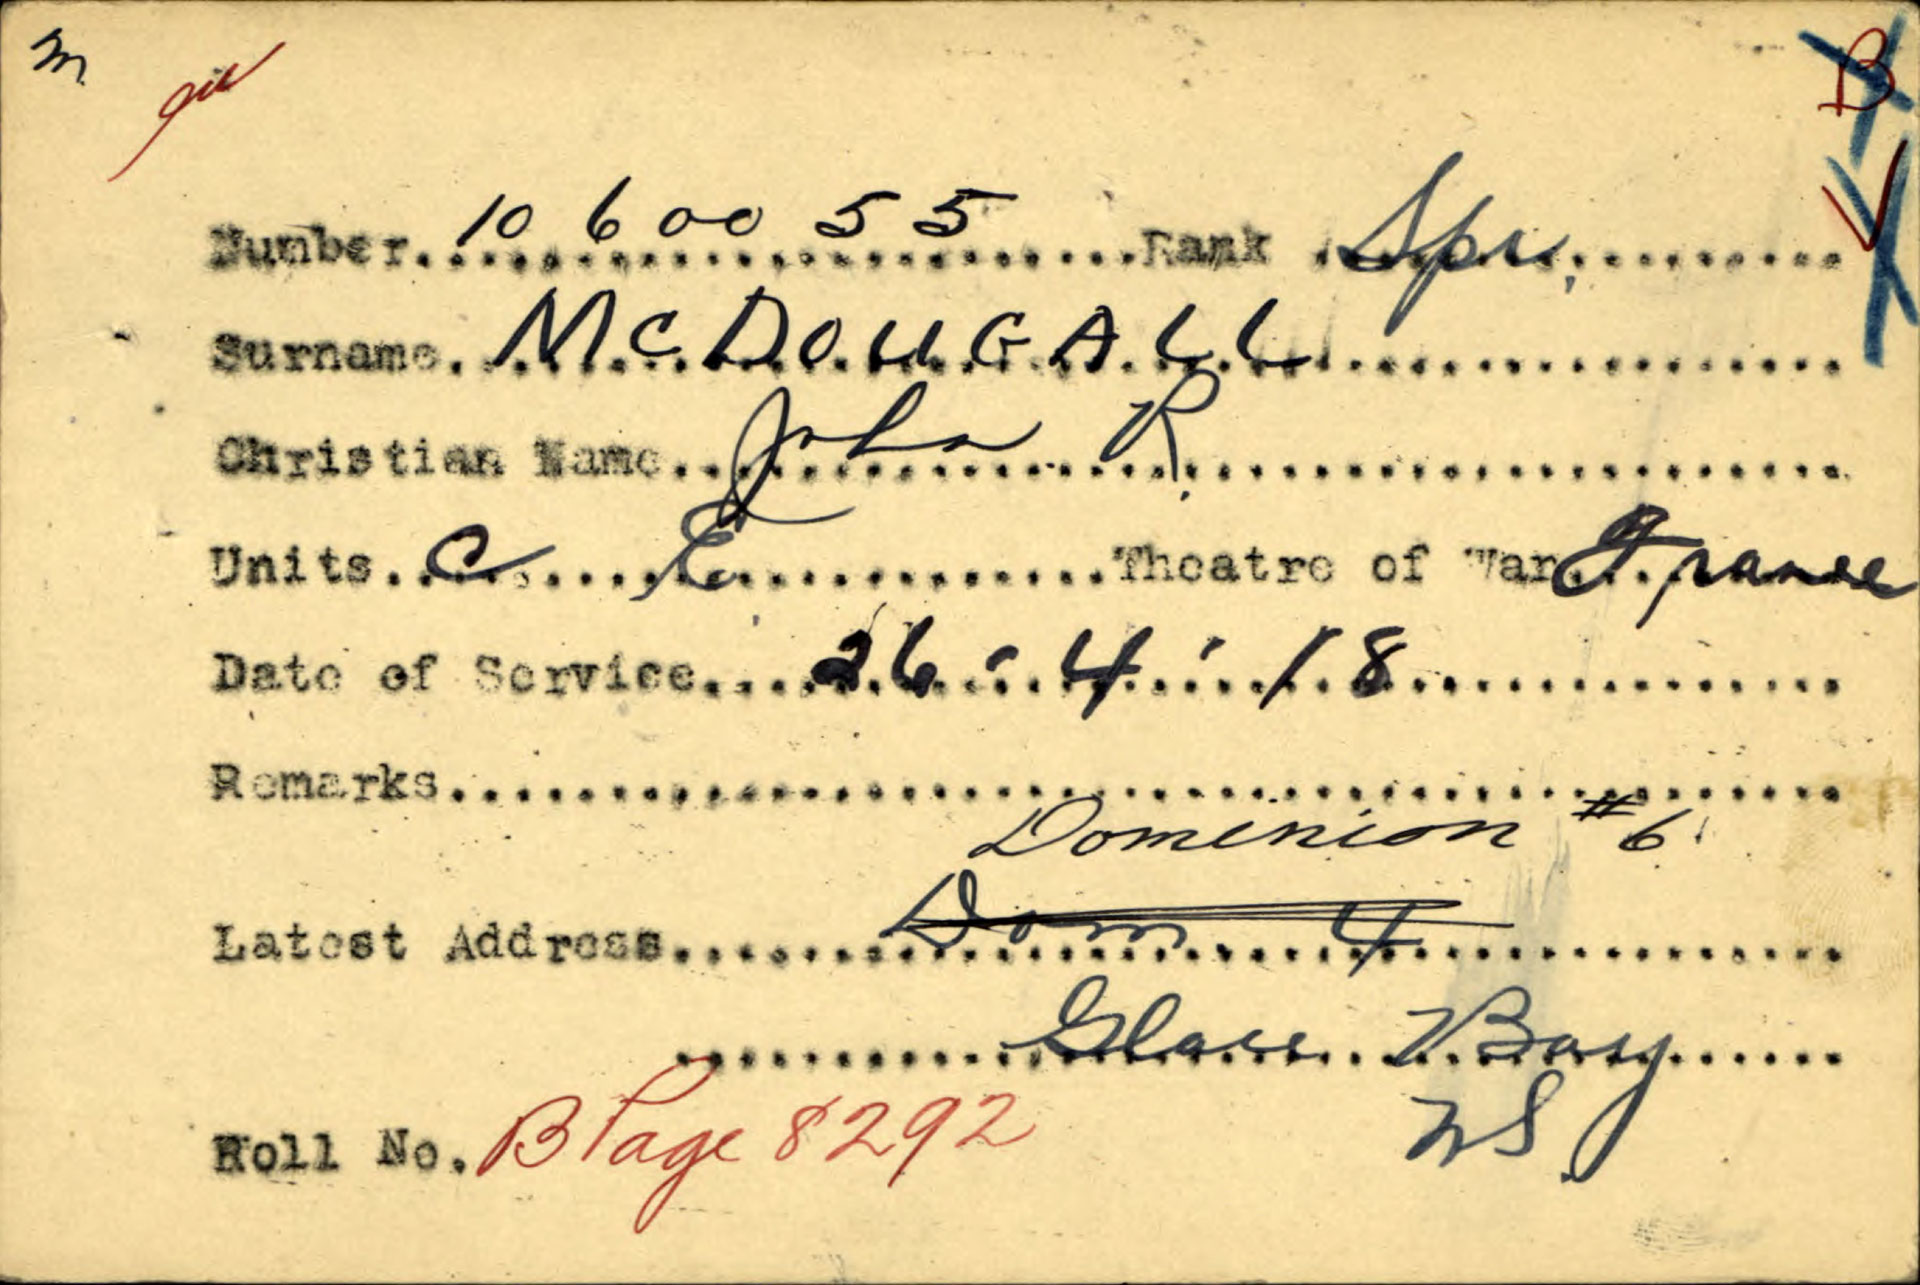 m
B
Number 1060055 Rank Spr.
Surname McDOUGALL
Christian Name John R.
Units C. E. Theatre of War France
Date of Service 26-4-18
Remarks
Domenion #6
Latest Address Dom 4
Glace Bay
NS.
Roll No. B Page 8292